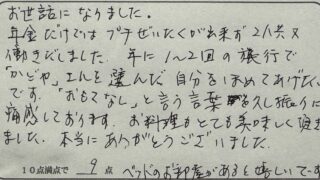 お世話になりました。
年金だけではプチぜいたくが出来ず2人共
働きだしました。年に1〜2回の旅行で
"かどや"さんを選んだ自分をほめてあげたい
です。「おもてなし」と言う言葉を久し振りに
痛感しております。お料理もとても美しく頂き
ました。本当にありがとうございました。
10点満点で 9 点 ベッドのお部屋があると嬉しいです